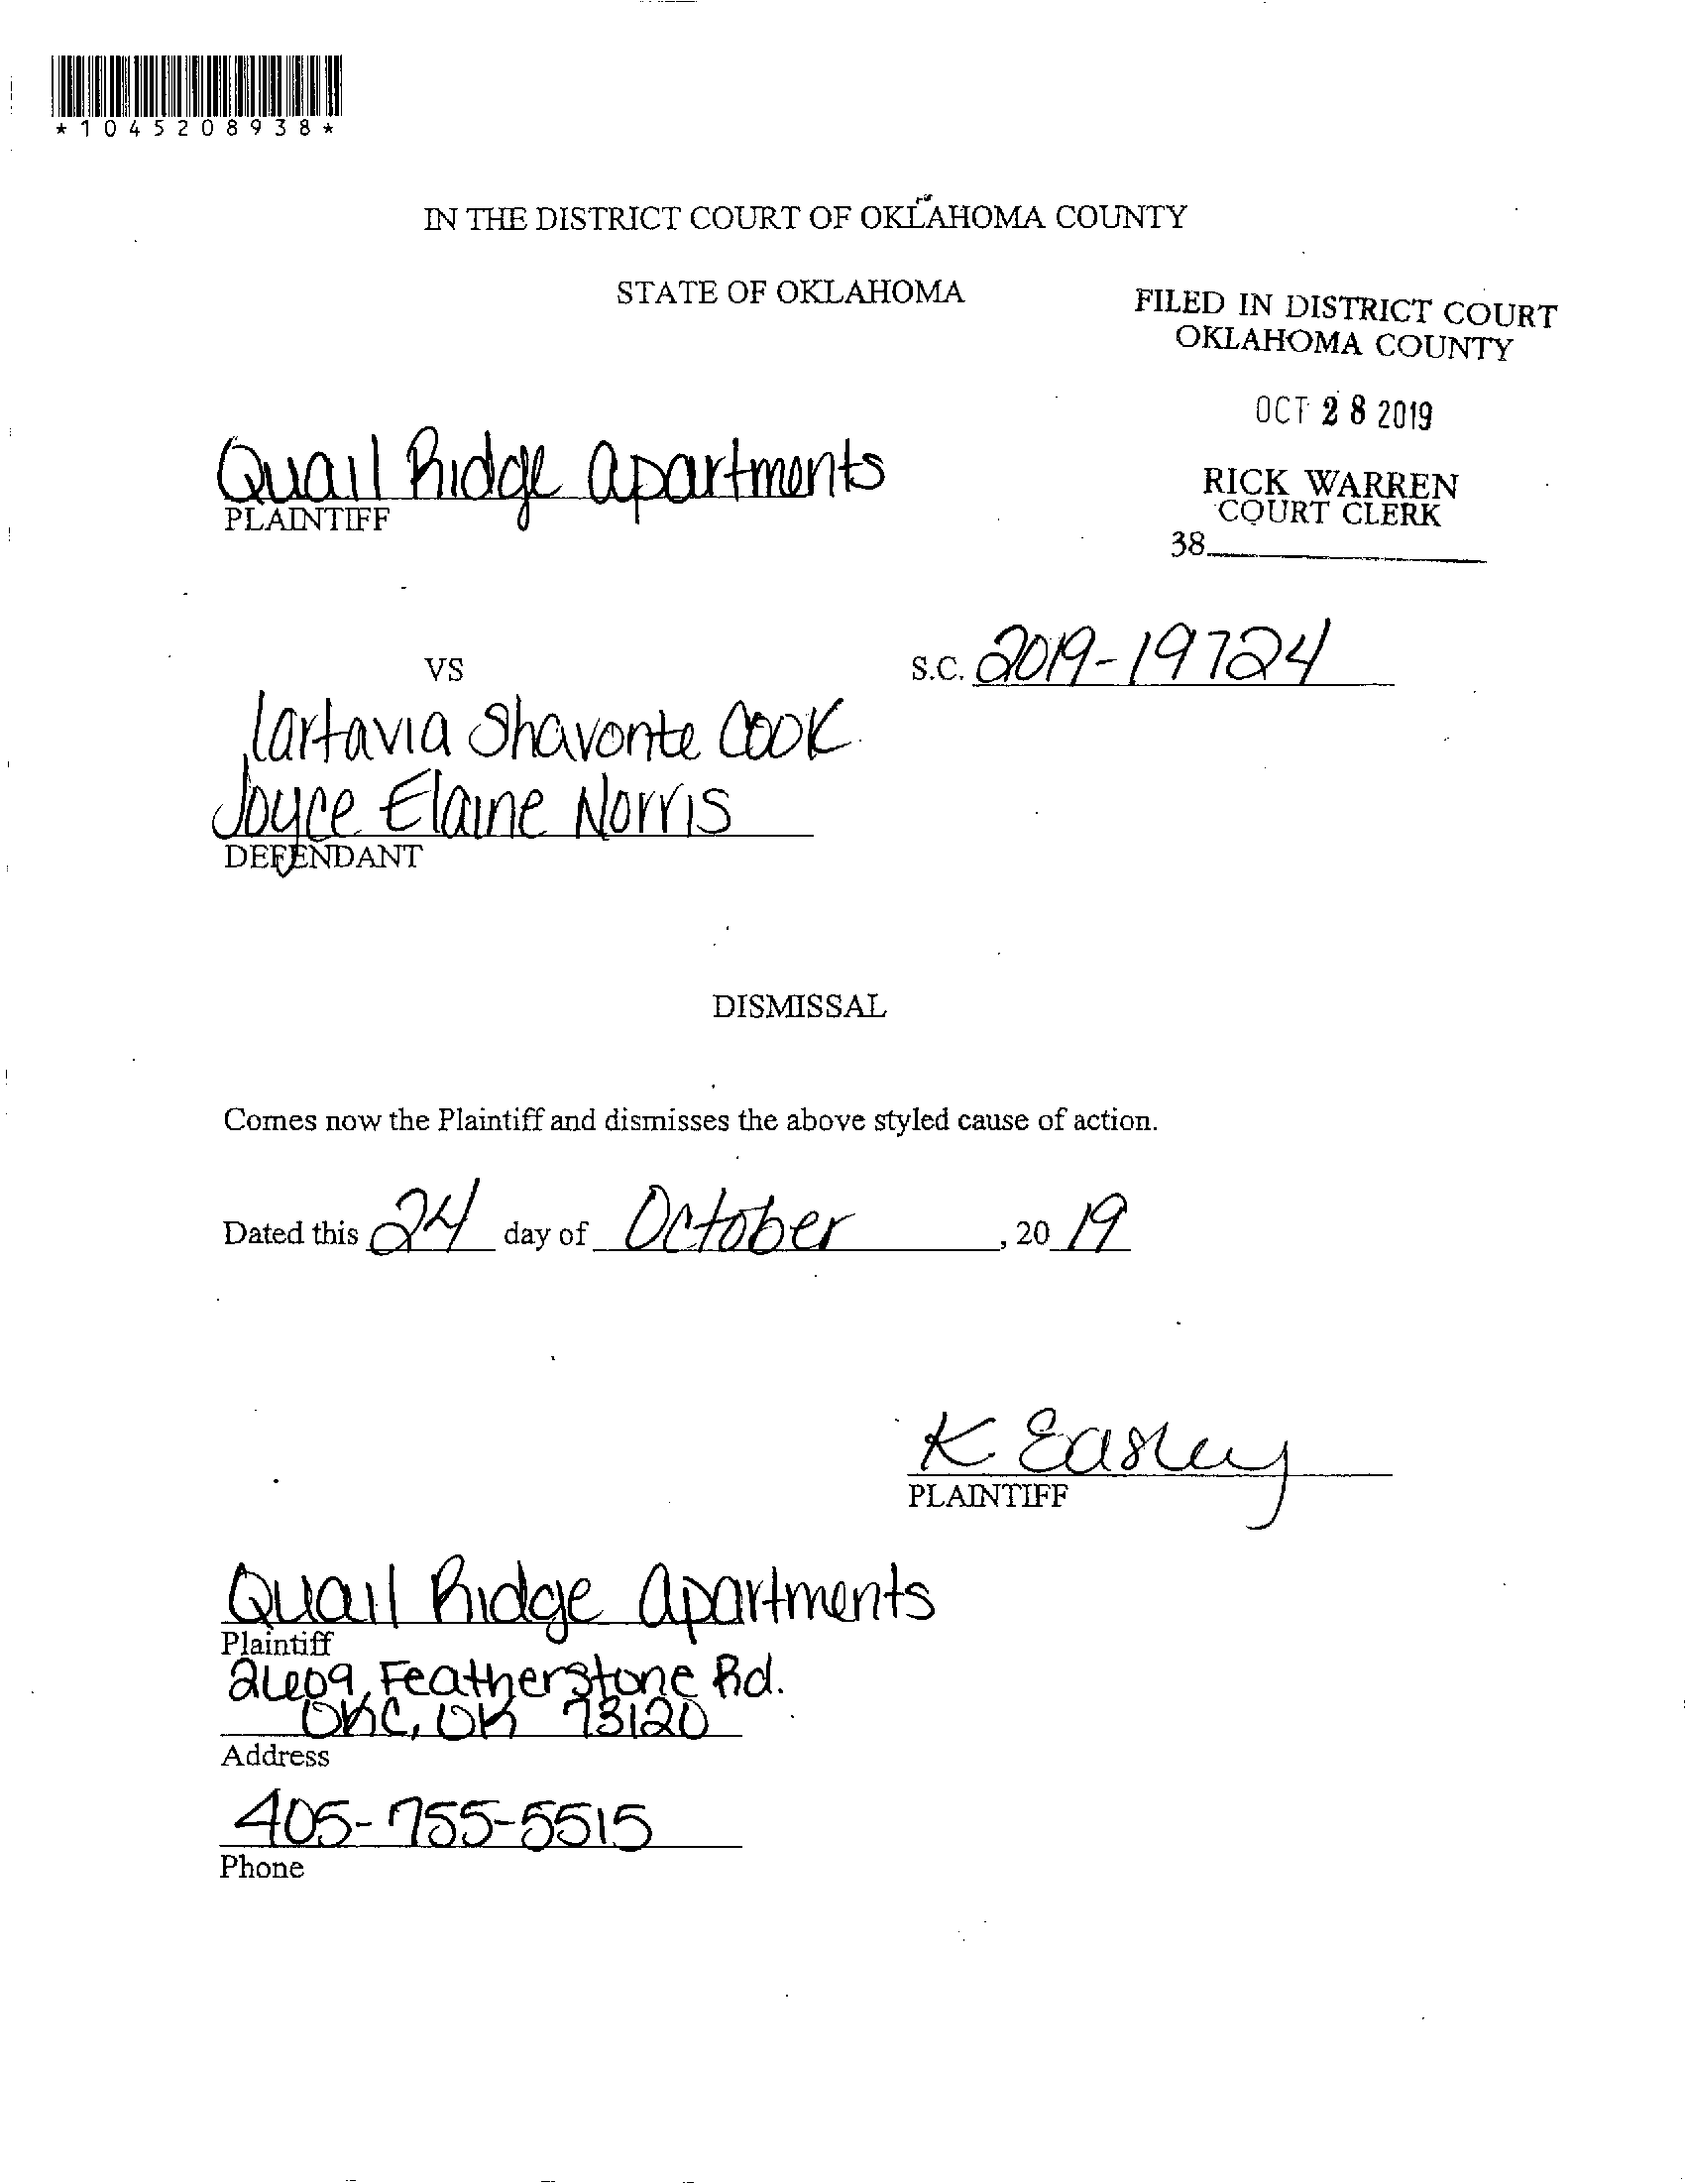 *1045208938*
IN THE DISTRICT COURT OF OKLAHOMA COUNTY
STATE OF OKLAHOMA
FILED IN DISTRICT COURT
OKLAHOMA COUNTY
OCT 28 2019
RICK WARREN
COURT CLERK
38
Quail Ridge Apartments
PLAINTIFF
VS
S.C. 2019-19724
Lartavia Shavonte Cook
Joyce Elaine Norris
DEFENDANT
DISMISSAL
Comes now the Plaintiff and dismisses the above styled cause of action.
Dated this 24 day of October, 20 19
K Easley
PLAINTIFF
Quail Ridge Apartments
Plaintiff
2609 Featherstone Rd.
OKC, OK 73120
Address
405-755-5515
Phone